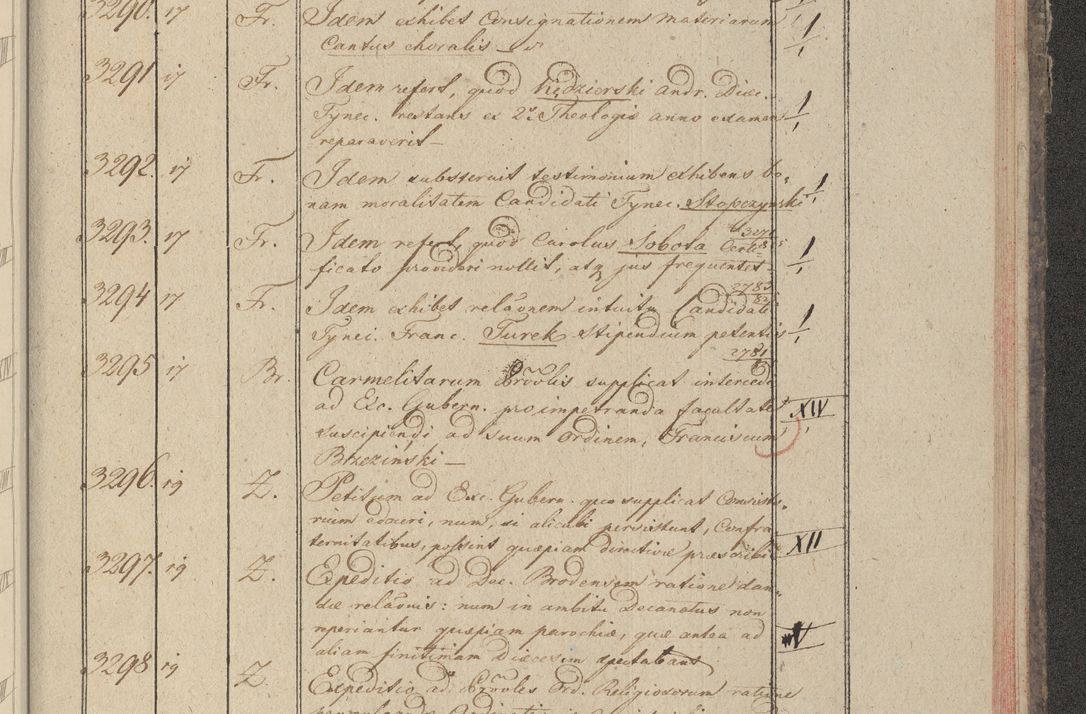 3290. 17 Fr. Idem exhibet Consignationem materiarum 1
Cantus choralis
3291 17 Fr. Idem refert, quod Kędzierski Andr. Diœc.
Tynec. restans ex 2æ Theologiæ anno examen 1
reparaverit
3292. 17 Fr. Idem substernit testimonium exhibens bo-
nam moralitatem Candidati Tynec. Stopczynski 1
3293. 17 Fr. Idem refert, quod Carolus Sobota
ficato provideri nollit, atq jus frequentet 1
2783
3294 17 Fr. Idem exhibet relaõnem intuitu Candidati
Tynci. Franc. Turek stipendium petentis 1
2781
3295 17 Br. Carmelitarum supplicat intercedi
ad Exc. Gubern. pro impetranda facultate XIV
suscipiendi ad suum Ordinem, Franciscum
Brzeziński
3296. 19 Z. Petitum ad Exc. Gubern. quo supplicat Consisto-
rium edoceri, num, si alicubi persistunt, Confra
ternitatibus, possint quæpiam directivæ præscribi XII
3297. 19 Z. Expeditio ad Dec. Brodensem ratione dan-
dæ relaõnis: num in ambitu Decanatus non
reperiantur quæpiam parochiæ, quæ antea ad V
aliam finitimam Diœcesim spectabant
3298 19 Z. Expeditio ad Ord. Religiosorum ratione